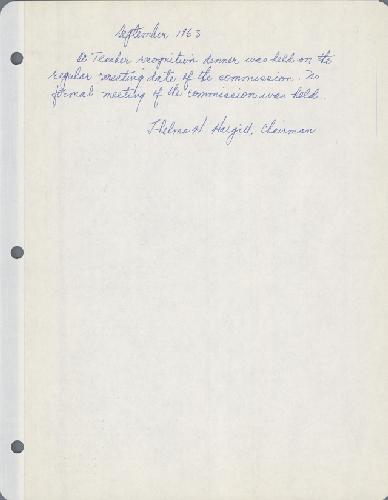 September 1963
A Teacher recognition dinner was held on the
regular meeting date of the commission. No
formal meeting of the commission was held.
Thelma H. Hargitt, Chairman